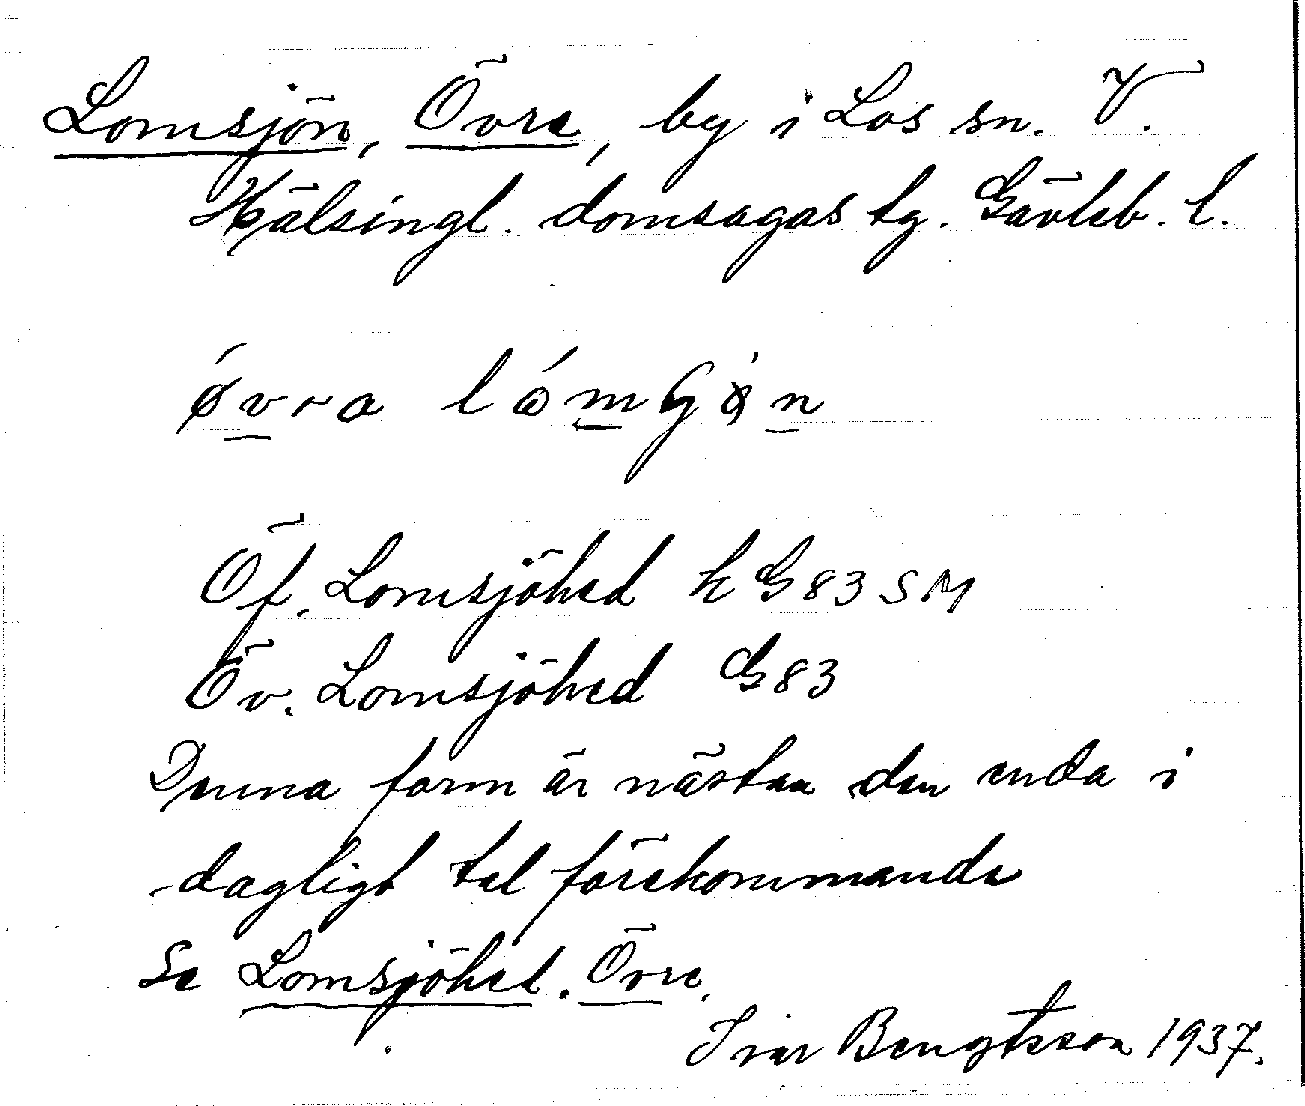 Lomsjön, Övre, by i Los sn. V.
Hälsingl. domsagas tg. Gävleb. l.
ǿvra lómʃøn
Öf. Lomsjöhed k G83SM
Öv. Lomsjöhed G83
Denna form är nästan den enda i
dagligt tal förekommande
Se Lomsjöhed. Övre.
Ivar Bengtsson 1937.